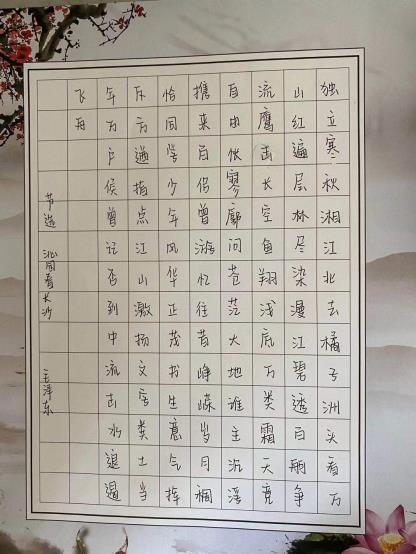 独立寒秋湘江北去橘子洲头看万
山红遍层林尽染漫江碧透百舸争
流鹰击长空鱼翔浅底万类霜天竞
自由怅寥廓问苍茫大地谁主沉浮
携来百侣曾游忆往昔峥嵘岁月稠
恰同学少年风华正茂书生意气挥
斥方遒指点江山激扬文字粪土当
年万户侯曾记否到中流击水浪遏
飞舟
节选 沁园春长沙 毛泽东